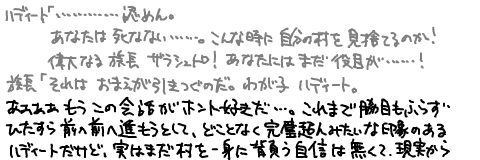 ハディード「…………認めん。
あなたは死なない……。こんな時に自分の村を見捨てるのか!
偉大なる族長 ザラシュトロ! あなたにはまだ役目が……!
族長「それは おまえが引きつぐのだ。わが子 ハディード。
あああああ もう この会話がホント好きだ…。これまで脇目もふらず
ひたすら前へ前へ進もうとして、どことなく完璧超人みたいな印象のある
ハディードだけど、実はまだ村を一身に背負う自信は無くて、現実から